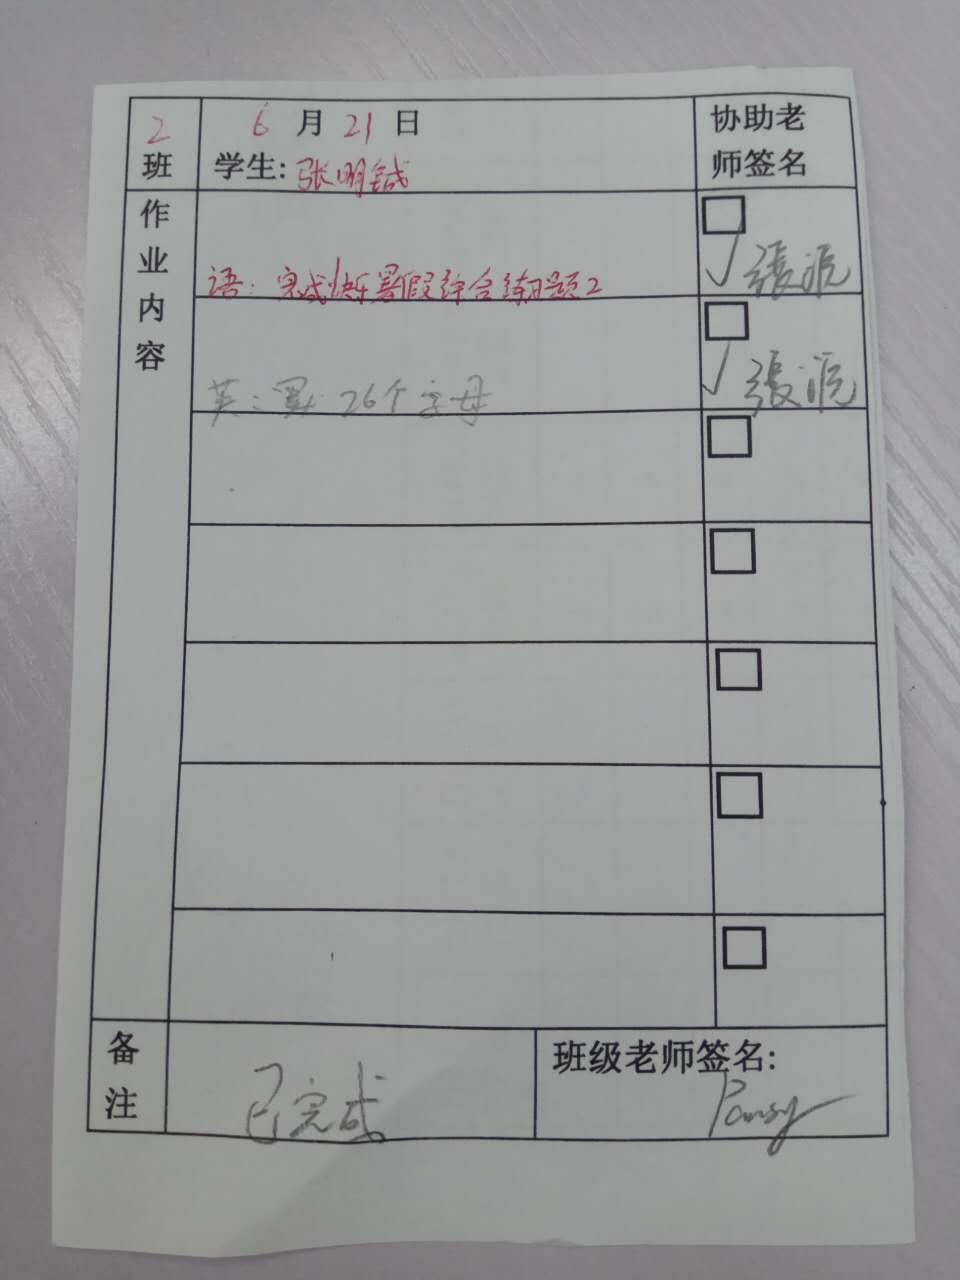 2 班
6 月 21 日
学生: 张明铖
协助老师签名
作业内容
语: 完成快乐暑假综合练习题2
✓ 張派
英: 默 26个字母
✓ 張派
备注
已完成
班级老师签名:
Pansy